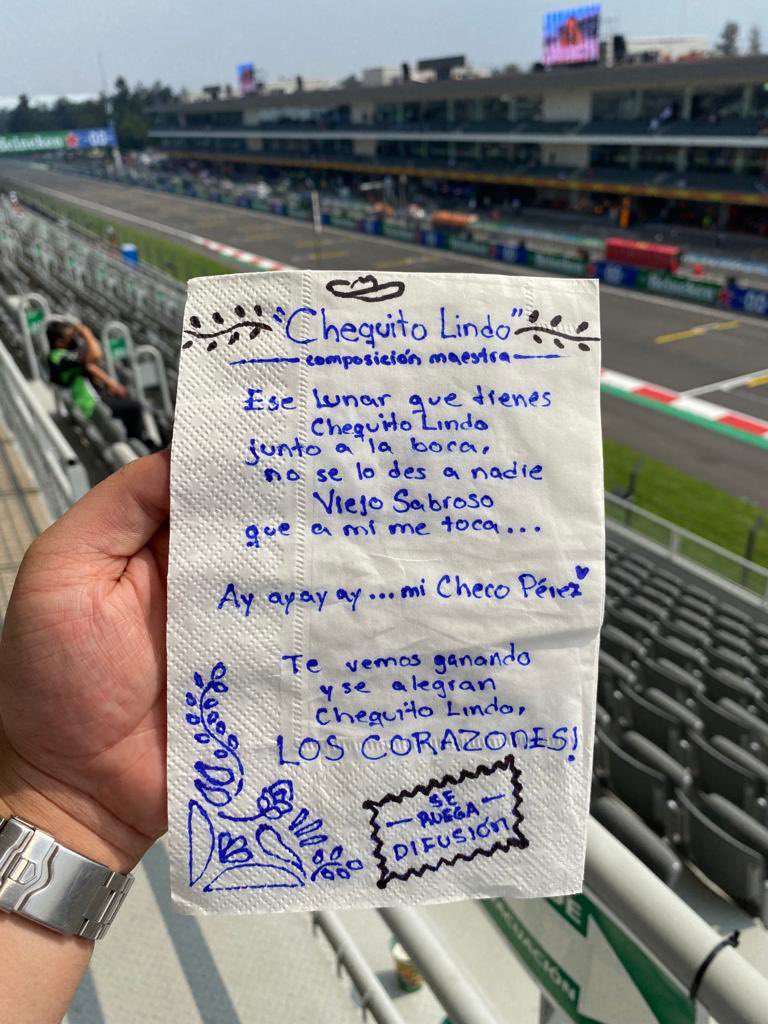 "Chequito Lindo"
composición maestra
Ese lunar que tienes
Chequito Lindo
junto a la boca,
no se lo des a nadie
Viejo Sabroso
que a mi me toca...
Ay ayay ay...mi Checo Pérez
Te vemos ganando
y se alegran
Chequito Lindo,
LOS CORAZONES!
SE
RUEGA
DIFUSIÓN
Heineken
Heineken
EVACUACIÓN